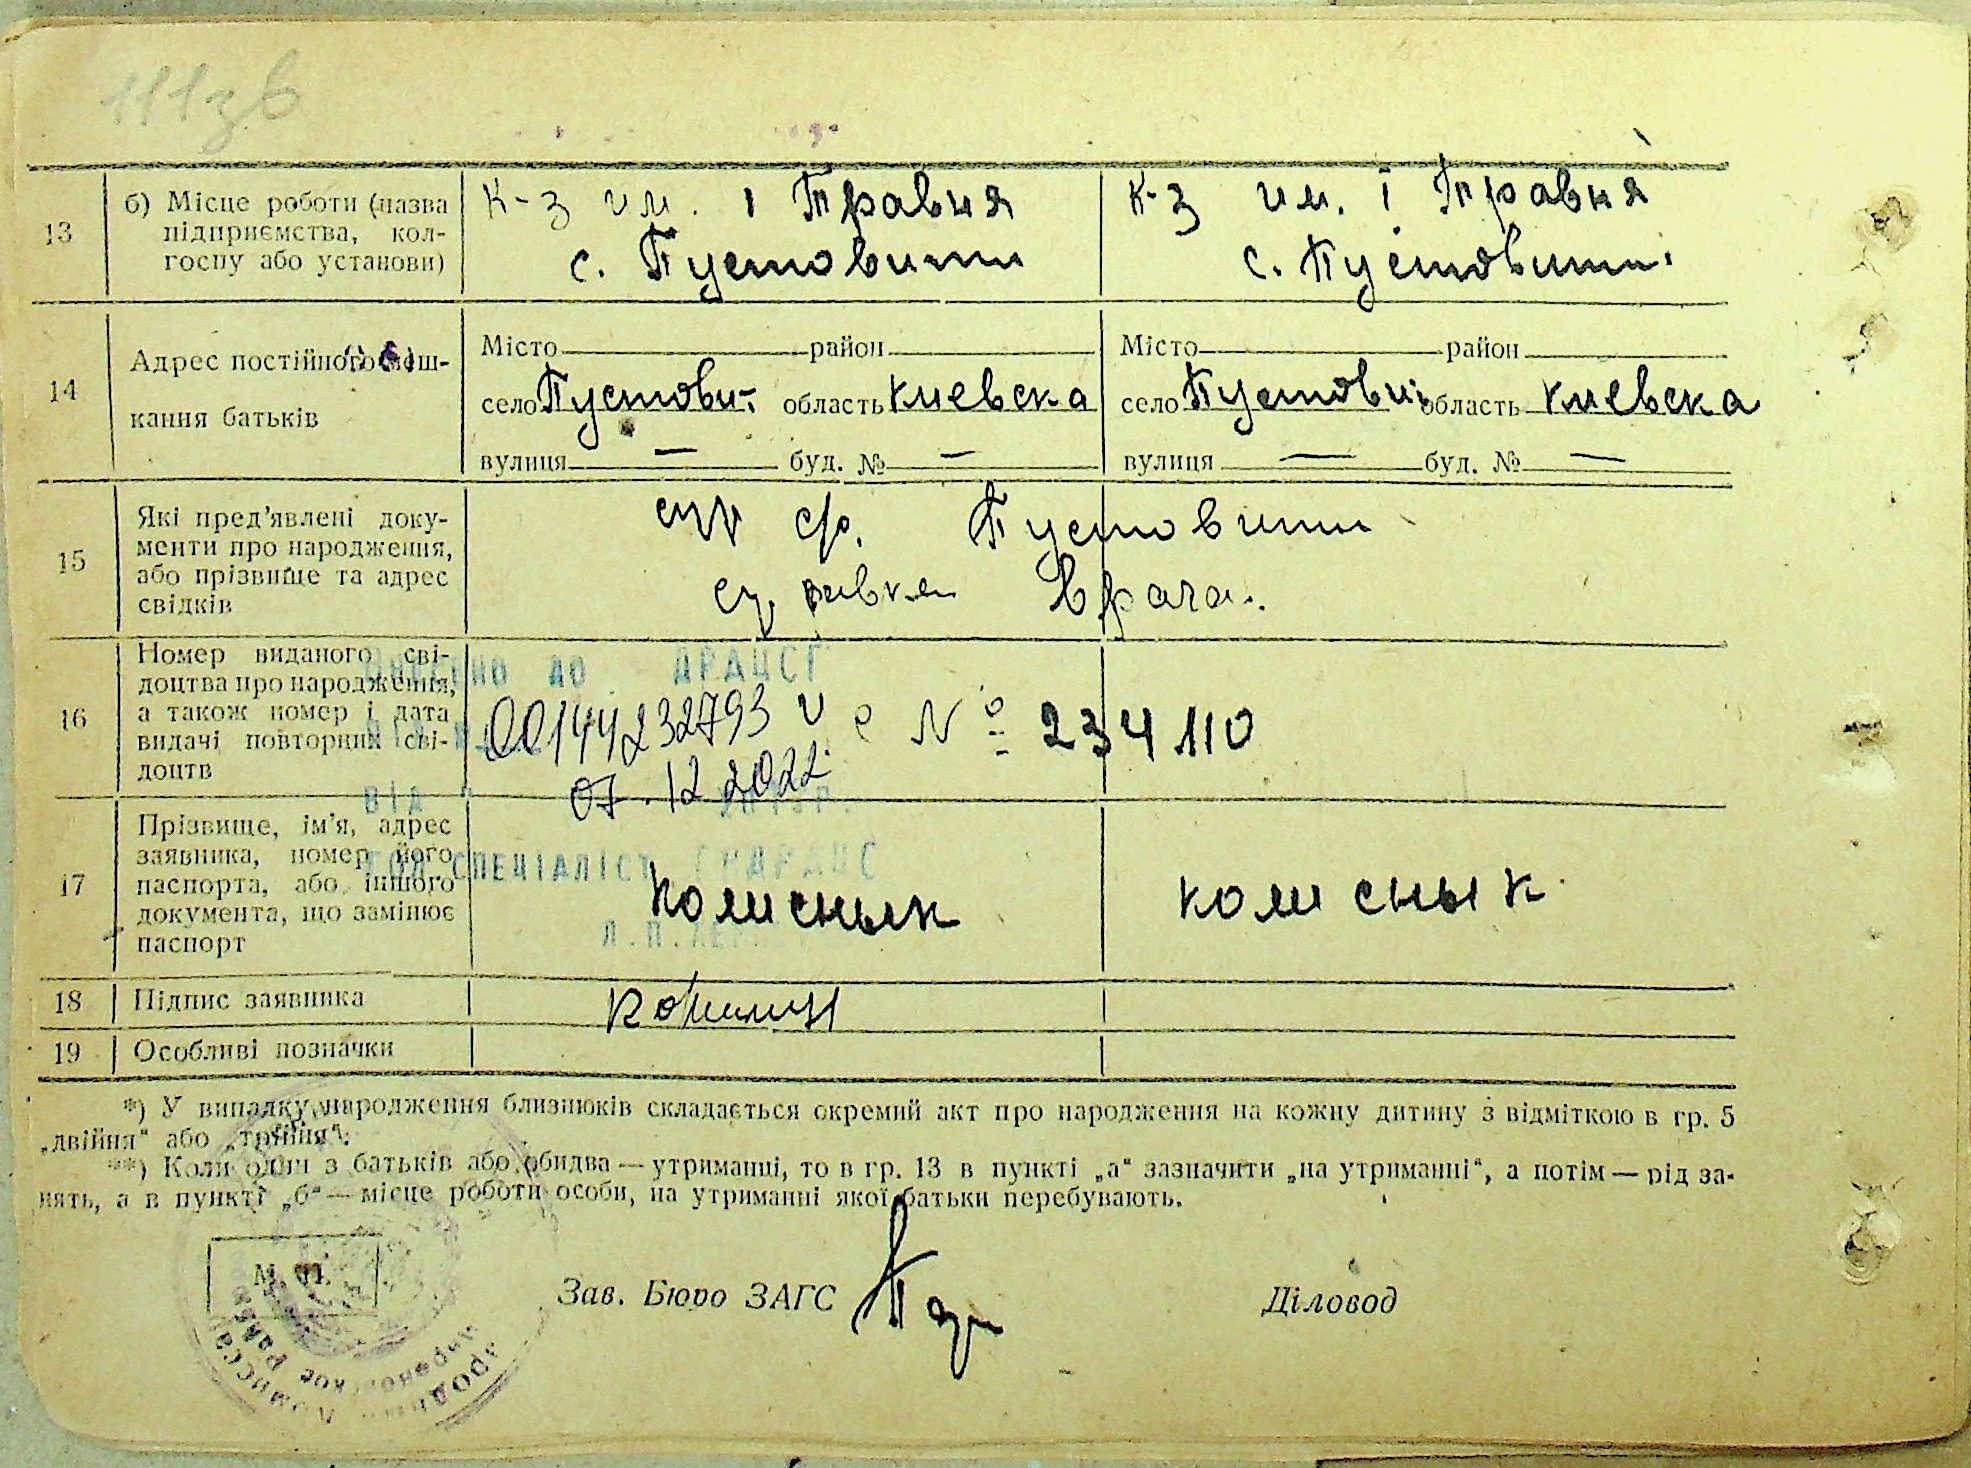 111зв
13
б) Місце роботи (назва
підприємства, кол-
госпу або установи)
к-з им. 1 Травня
с. Пустовити
к-з им. 1 Травня
с. Пустовити
14
Адрес постійного меш-
кання батьків
Місто район
село Пустови- область Киевска
вулиця — буд. № —
Місто район
село Пустови область Киевска
вулиця — буд. № —
15
Які пред'явлені доку-
менти про народження,
або прізвище та адрес
свідків
Пустовити
врача
16
Номер виданого сві-
доцтва про народження,
а також номер і дата
видачі повторних сві-
доцтв
ДО ДРАЦСГ
00144232793 и е № 234110
07.12.2022
ВІД
17
Прізвище, ім'я, адрес
заявника, номер його
паспорта, або іншого
документа, що замінює
паспорт
СПЕЦІАЛІСТ
Колисньік
колисньік
18
Підпис заявника
19
Особливі позначки
*) У випадку народження близнюків складається окремий акт про народження на кожну дитину з відміткою в гр. 5
„двійня" або „трійня".
**) Коли один з батьків або обидва — утриманці, то в гр. 13 в пункті „а" зазначити „на утриманні", а потім — рід за-
нять, а в пункті „б" — місце роботи особи, на утриманні якої батьки перебувають.
М. П.
Зав. Бюро ЗАГС
Діловод